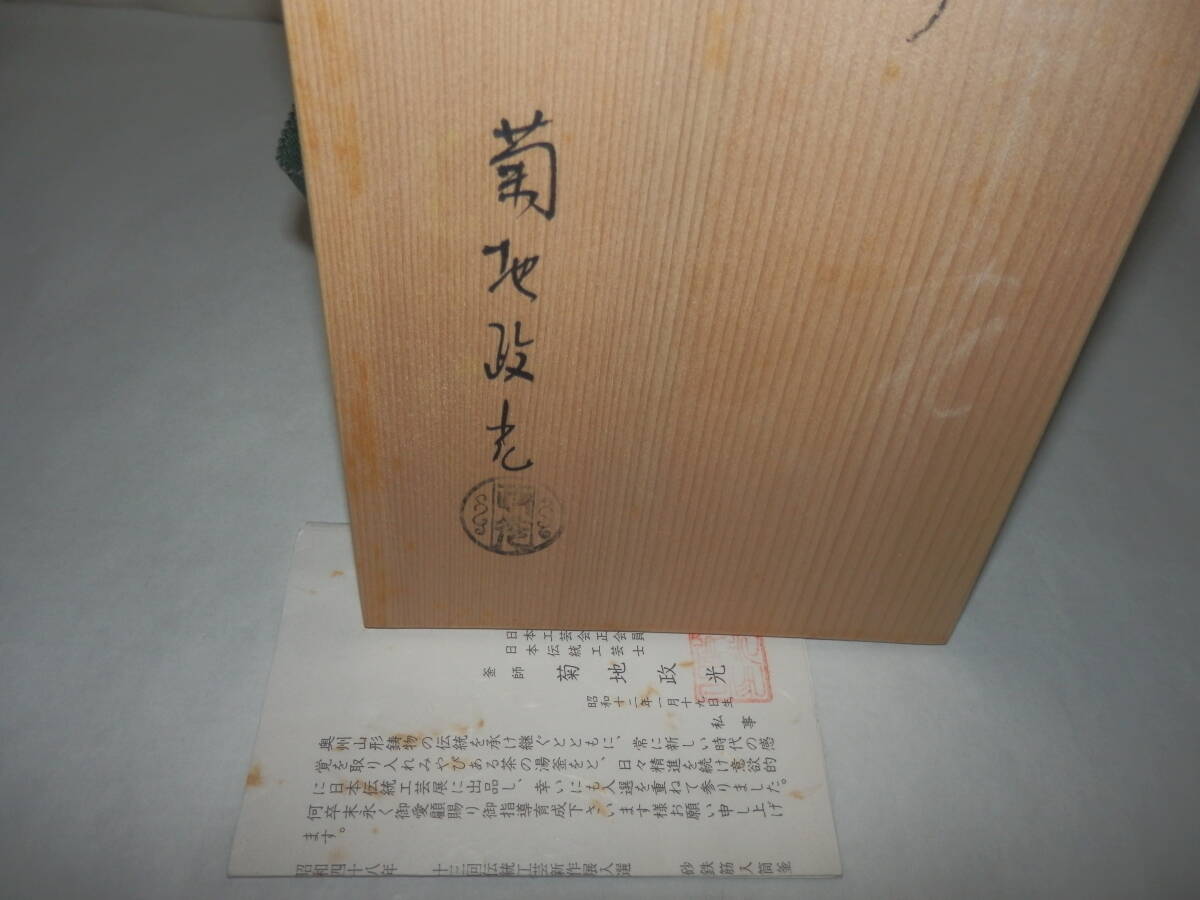 菊地政光
日本工芸会正会員
日本伝統工芸士
釜師 菊地政光
昭和十二年一月十九日生
私事
奥州山形鋳物の伝統を承け継ぐとともに、常に新しい時代の感
覚を取り入れみやびある茶の湯釜をと、日々精進を続け意欲的
に日本伝統工芸展に出品し、幸いにも入選を重ねて参りました。
何卒末永く御愛顧賜り御指導育成下さいます様お願い申し上げ
ます。
昭和四十八年 十三回伝統工芸新作展入選 砂鉄筋入筒釜